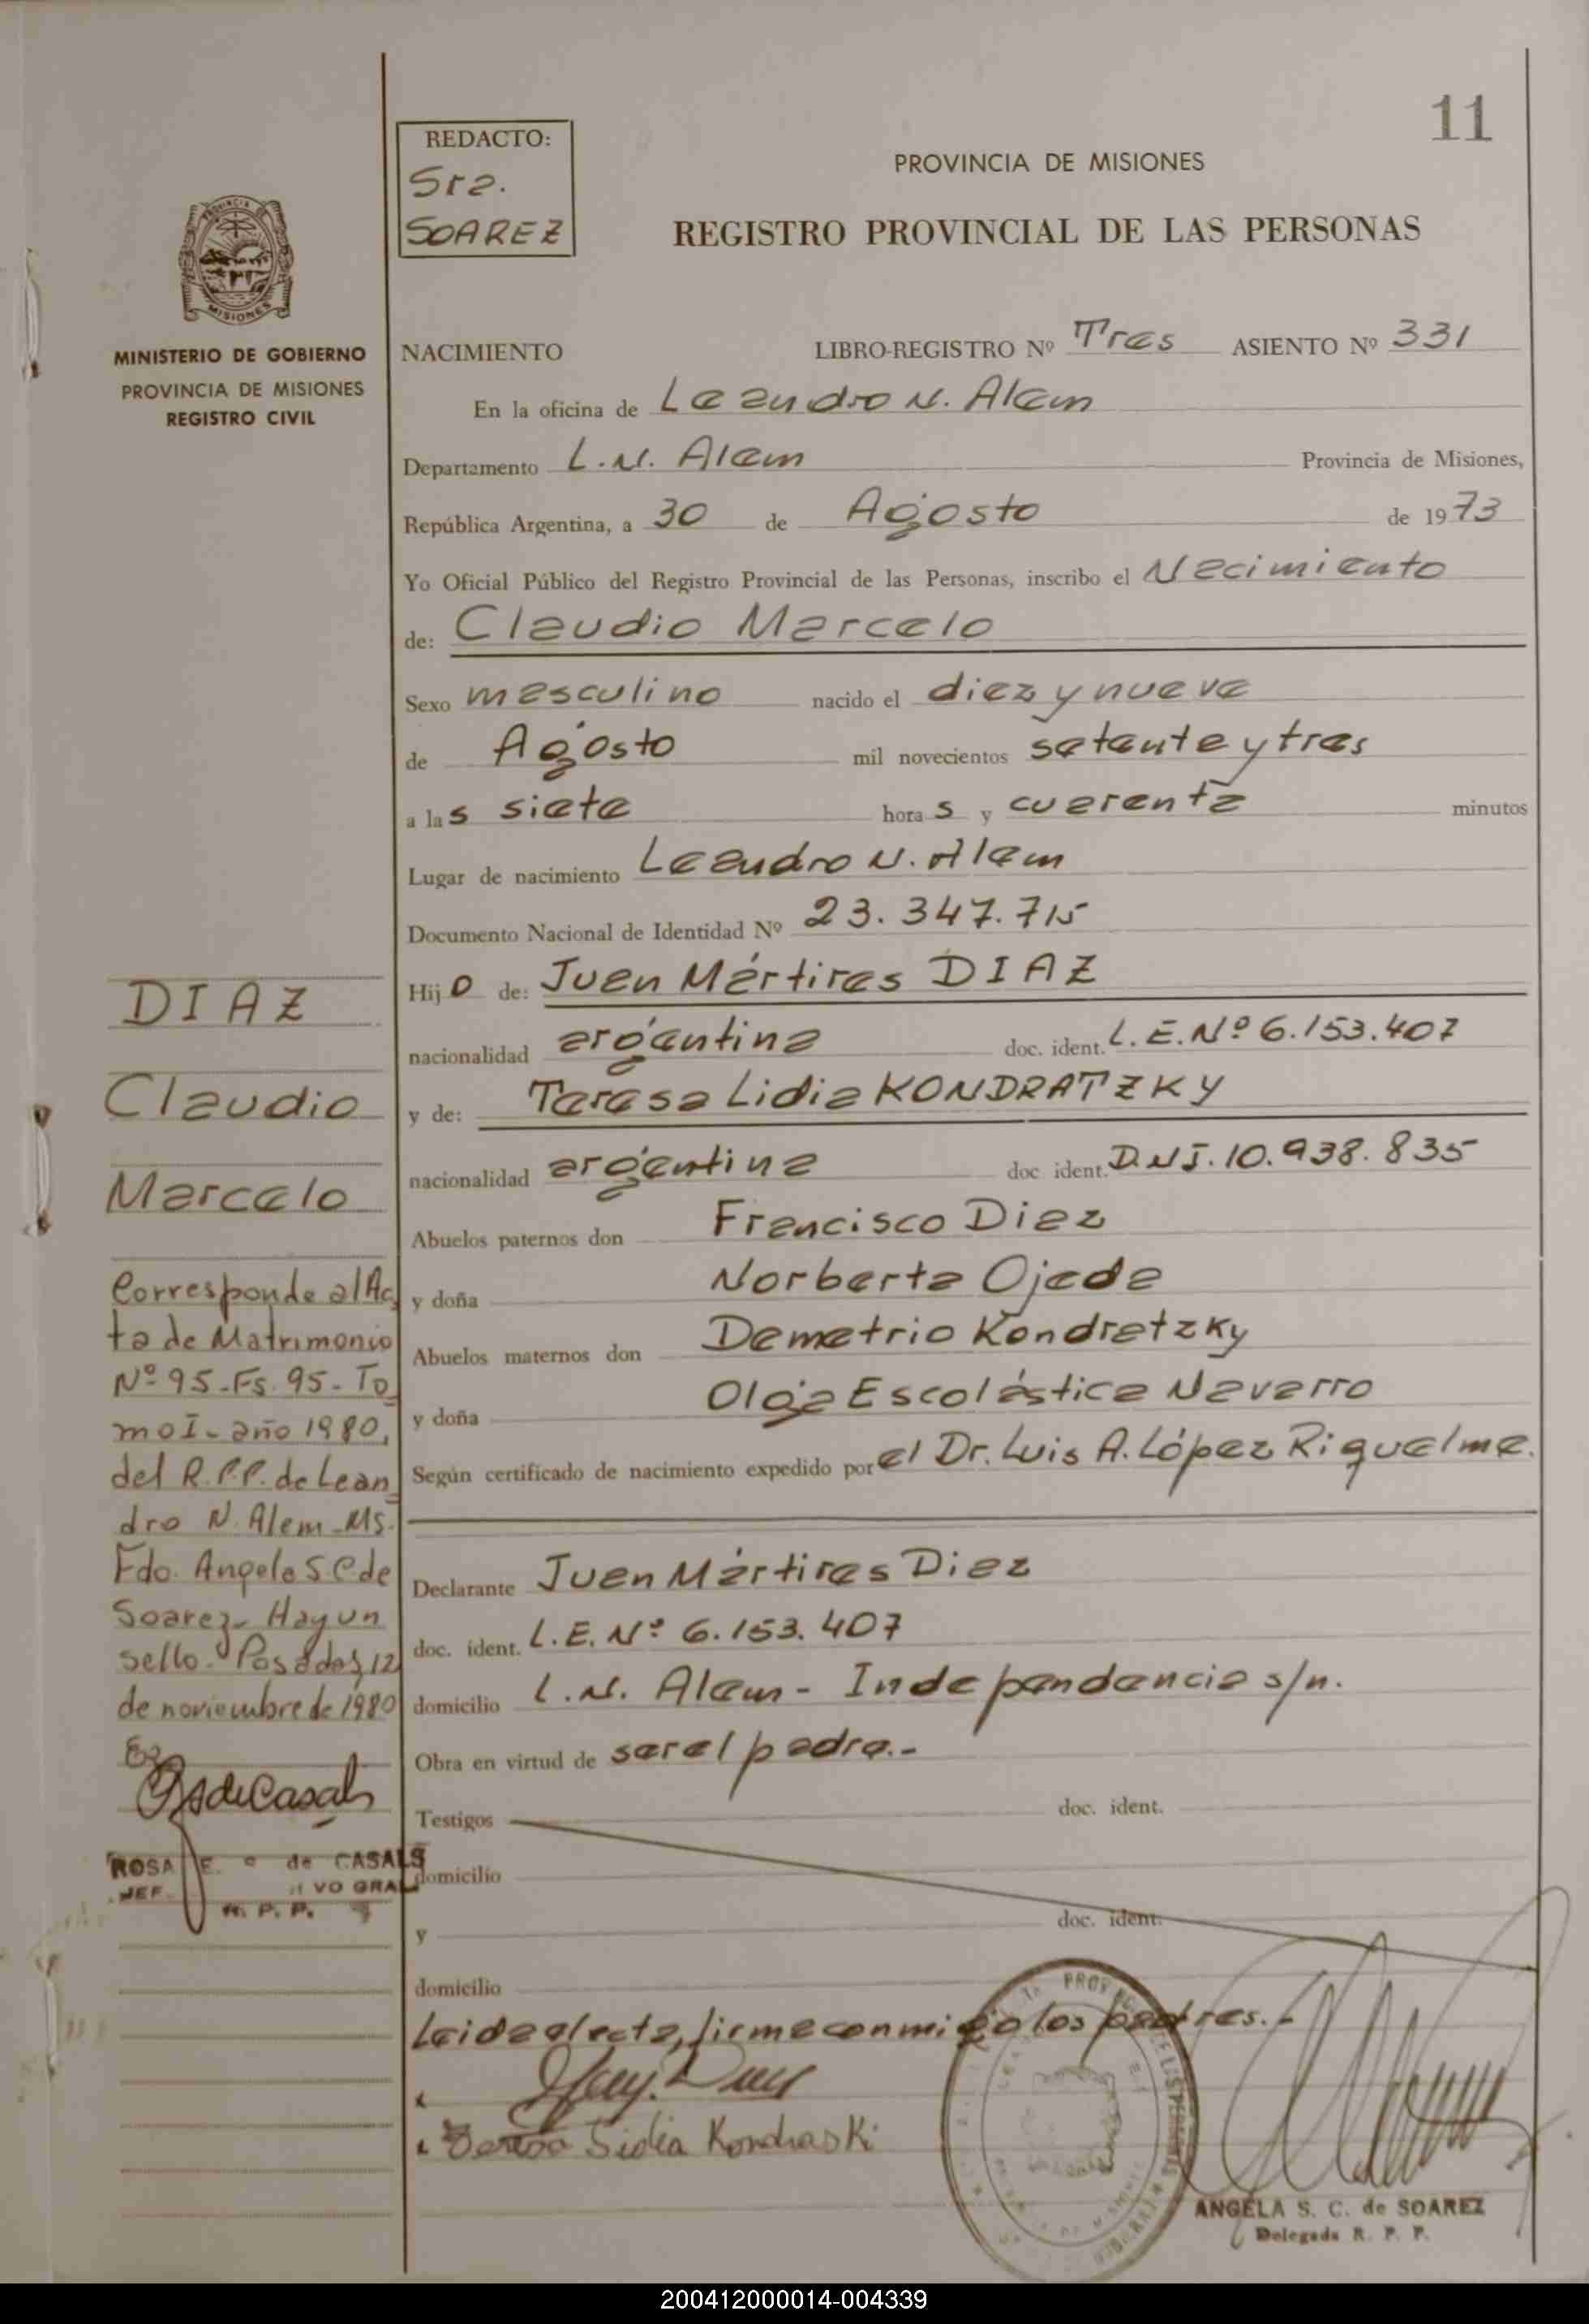 11
REDACTO:
Sra.
SOAREZ
PROVINCIA DE MISIONES
REGISTRO PROVINCIAL DE LAS PERSONAS
MISIONES
MINISTERIO DE GOBIERNO
PROVINCIA DE MISIONES
REGISTRO CIVIL
NACIMIENTO LIBRO-REGISTRO Nº Tres ASIENTO Nº 331
En la oficina de Leandro N. Alem
Departamento L.N. Alem Provincia de Misiones,
República Argentina, a 30 de Agosto de 1973
Yo Oficial Público del Registro Provincial de las Personas, inscribo el Nacimiento
de: Claudio Marcelo
Sexo masculino nacido el diez y nueve
de Agosto mil novecientos setenta y tres
a las siete horas y cuarenta minutos
Lugar de nacimiento Leandro N. Alem
Documento Nacional de Identidad Nº 23.347.715
Hijo de: Juan Mártires DIAZ
nacionalidad argentina doc. ident. L.E.Nº 6.153.407
y de: Teresa Lidia KONDRATZKY
nacionalidad argentina doc. ident. D.N.I. 10.938.835
Abuelos paternos don Francisco Diaz
y doña Norberta Ojeda
Abuelos maternos don Demetrio Kondratzky
y doña Olga Escolástica Navarro
Según certificado de nacimiento expedido por el Dr. Luis A. López Riquelme.
Declarante Juan Mártires Diaz
doc. ident. L.E. Nº 6.153.407
domicilio L.N. Alem - Independencia s/n.
Obra en virtud de ser el padre.-
Testigos doc. ident.
domicilio
y doc. ident.
domicilio
Leida el acta, firma conmigo los padres.-
Teresa Lidia Kondraski
ANGELA S. C. de SOAREZ
Delegada R. P. P.
DIAZ
Claudio
Marcelo
Corresponde al Ac
ta de Matrimonio
Nº 95-Fs. 95-To
mo I- año 1980,
del R.P.P. de Lean
dro N. Alem-Ms.
Fdo. Angela S C de
Soarez- Hay un
sello- Posadas, 12
de noviembre de 1980
ROSA E. de CASALS
R. P. P.
200412000014-004339